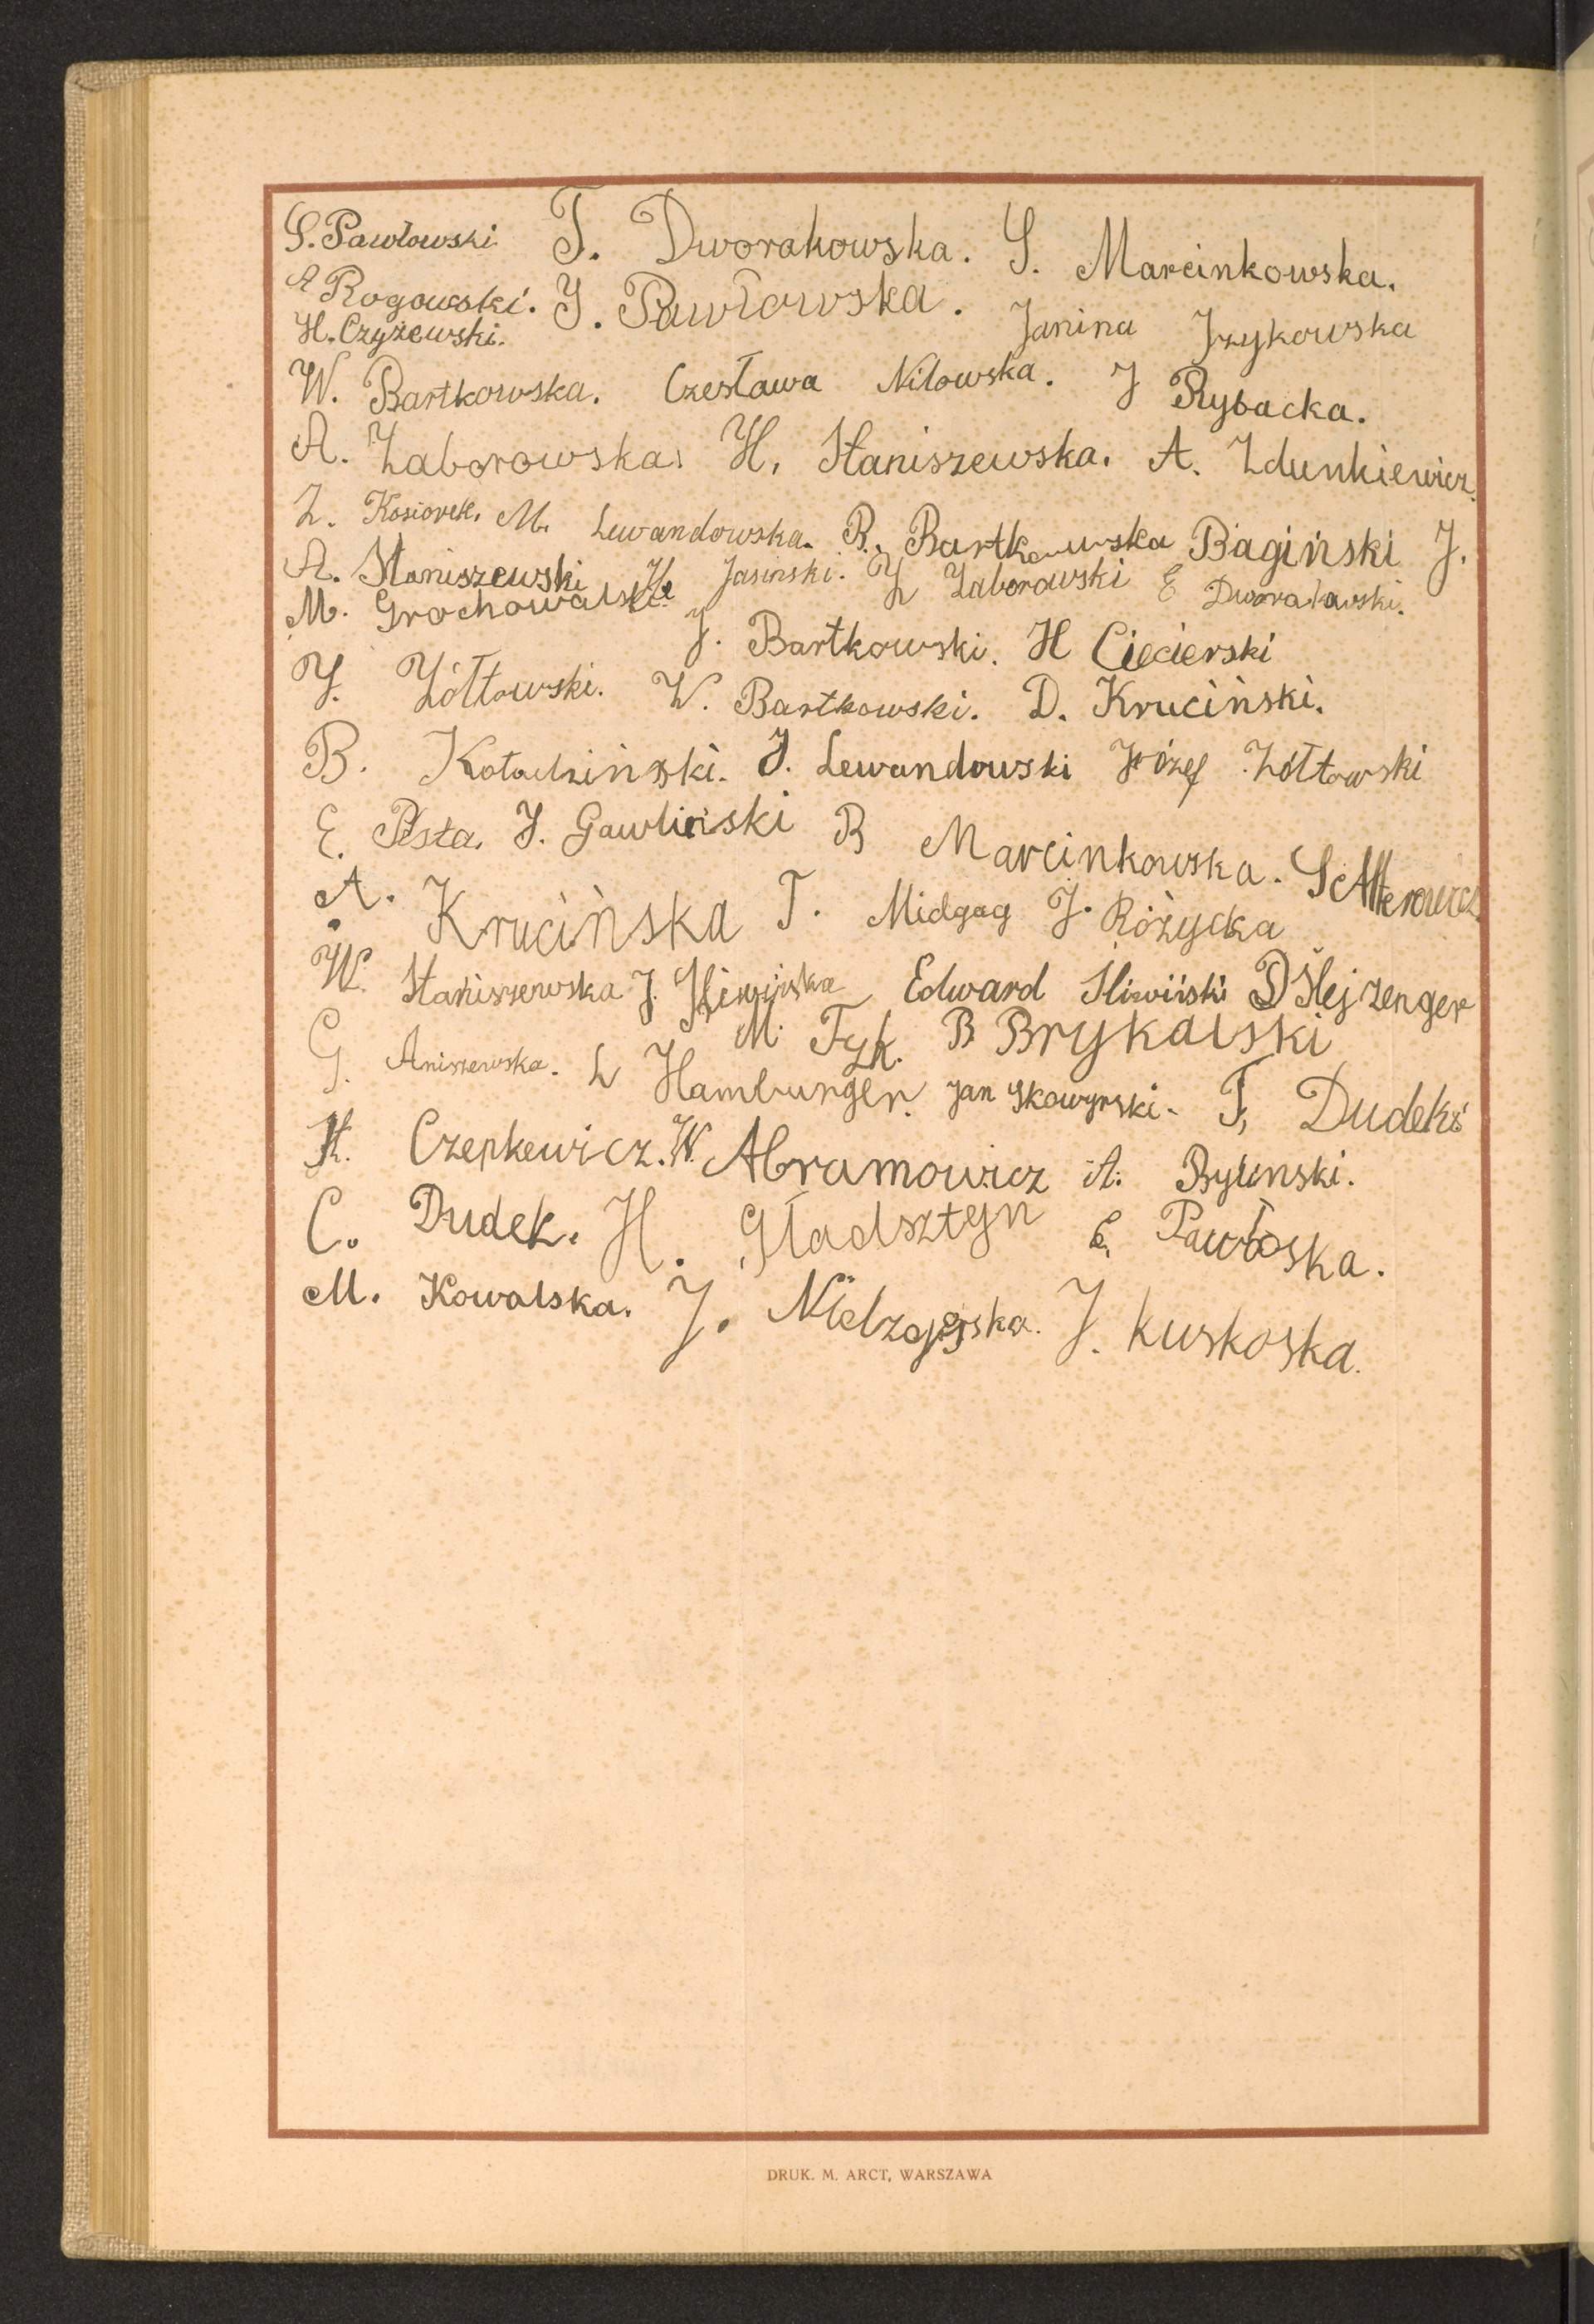 S. Pawłowski T. Dworakowska. S. Marcinkowska.
A Rogowski. J. Pawłowska. Janina Jzykowska
H. Czyżewski.
W. Bartkowska. Czesława Nitowska. J Rybacka.
A. Zaborowska. H. Staniszewska. A. Zdunkiewicz.
Z. Kosiorek. M. Lewandowska. R. Bartkowska Bagiński J.
A. Staniszewski H. Jasinski. Z Zaborowski E Dworakowski.
M. Grochowalski. J. Bartkowski. H Ciecierski
J. Żółtowski. W. Bartkowski. D. Kruciński.
B. Kołodziński. J. Lewandowski Józef Żółtowski
E. Pesta. J. Gawliński B Marcinkowska. S Alterowicz.
A. Krucińska T. Midgag J. Różycka
W. Staniszewska J. Śliwińska Edward Śliwiński D Ślejzenger
M. Fyk. B Brykalski
G. Aniszewska. L Hamburger. Jan Skowyrski. T, Dudek
K. Czepkewicz. W. Abramowicz A. Bylinski.
C. Dudek. H. Gładsztyn E. Pawłoska.
M. Kowalska. J. J. Kuskoska.
DRUK. M. ARCT, WARSZAWA